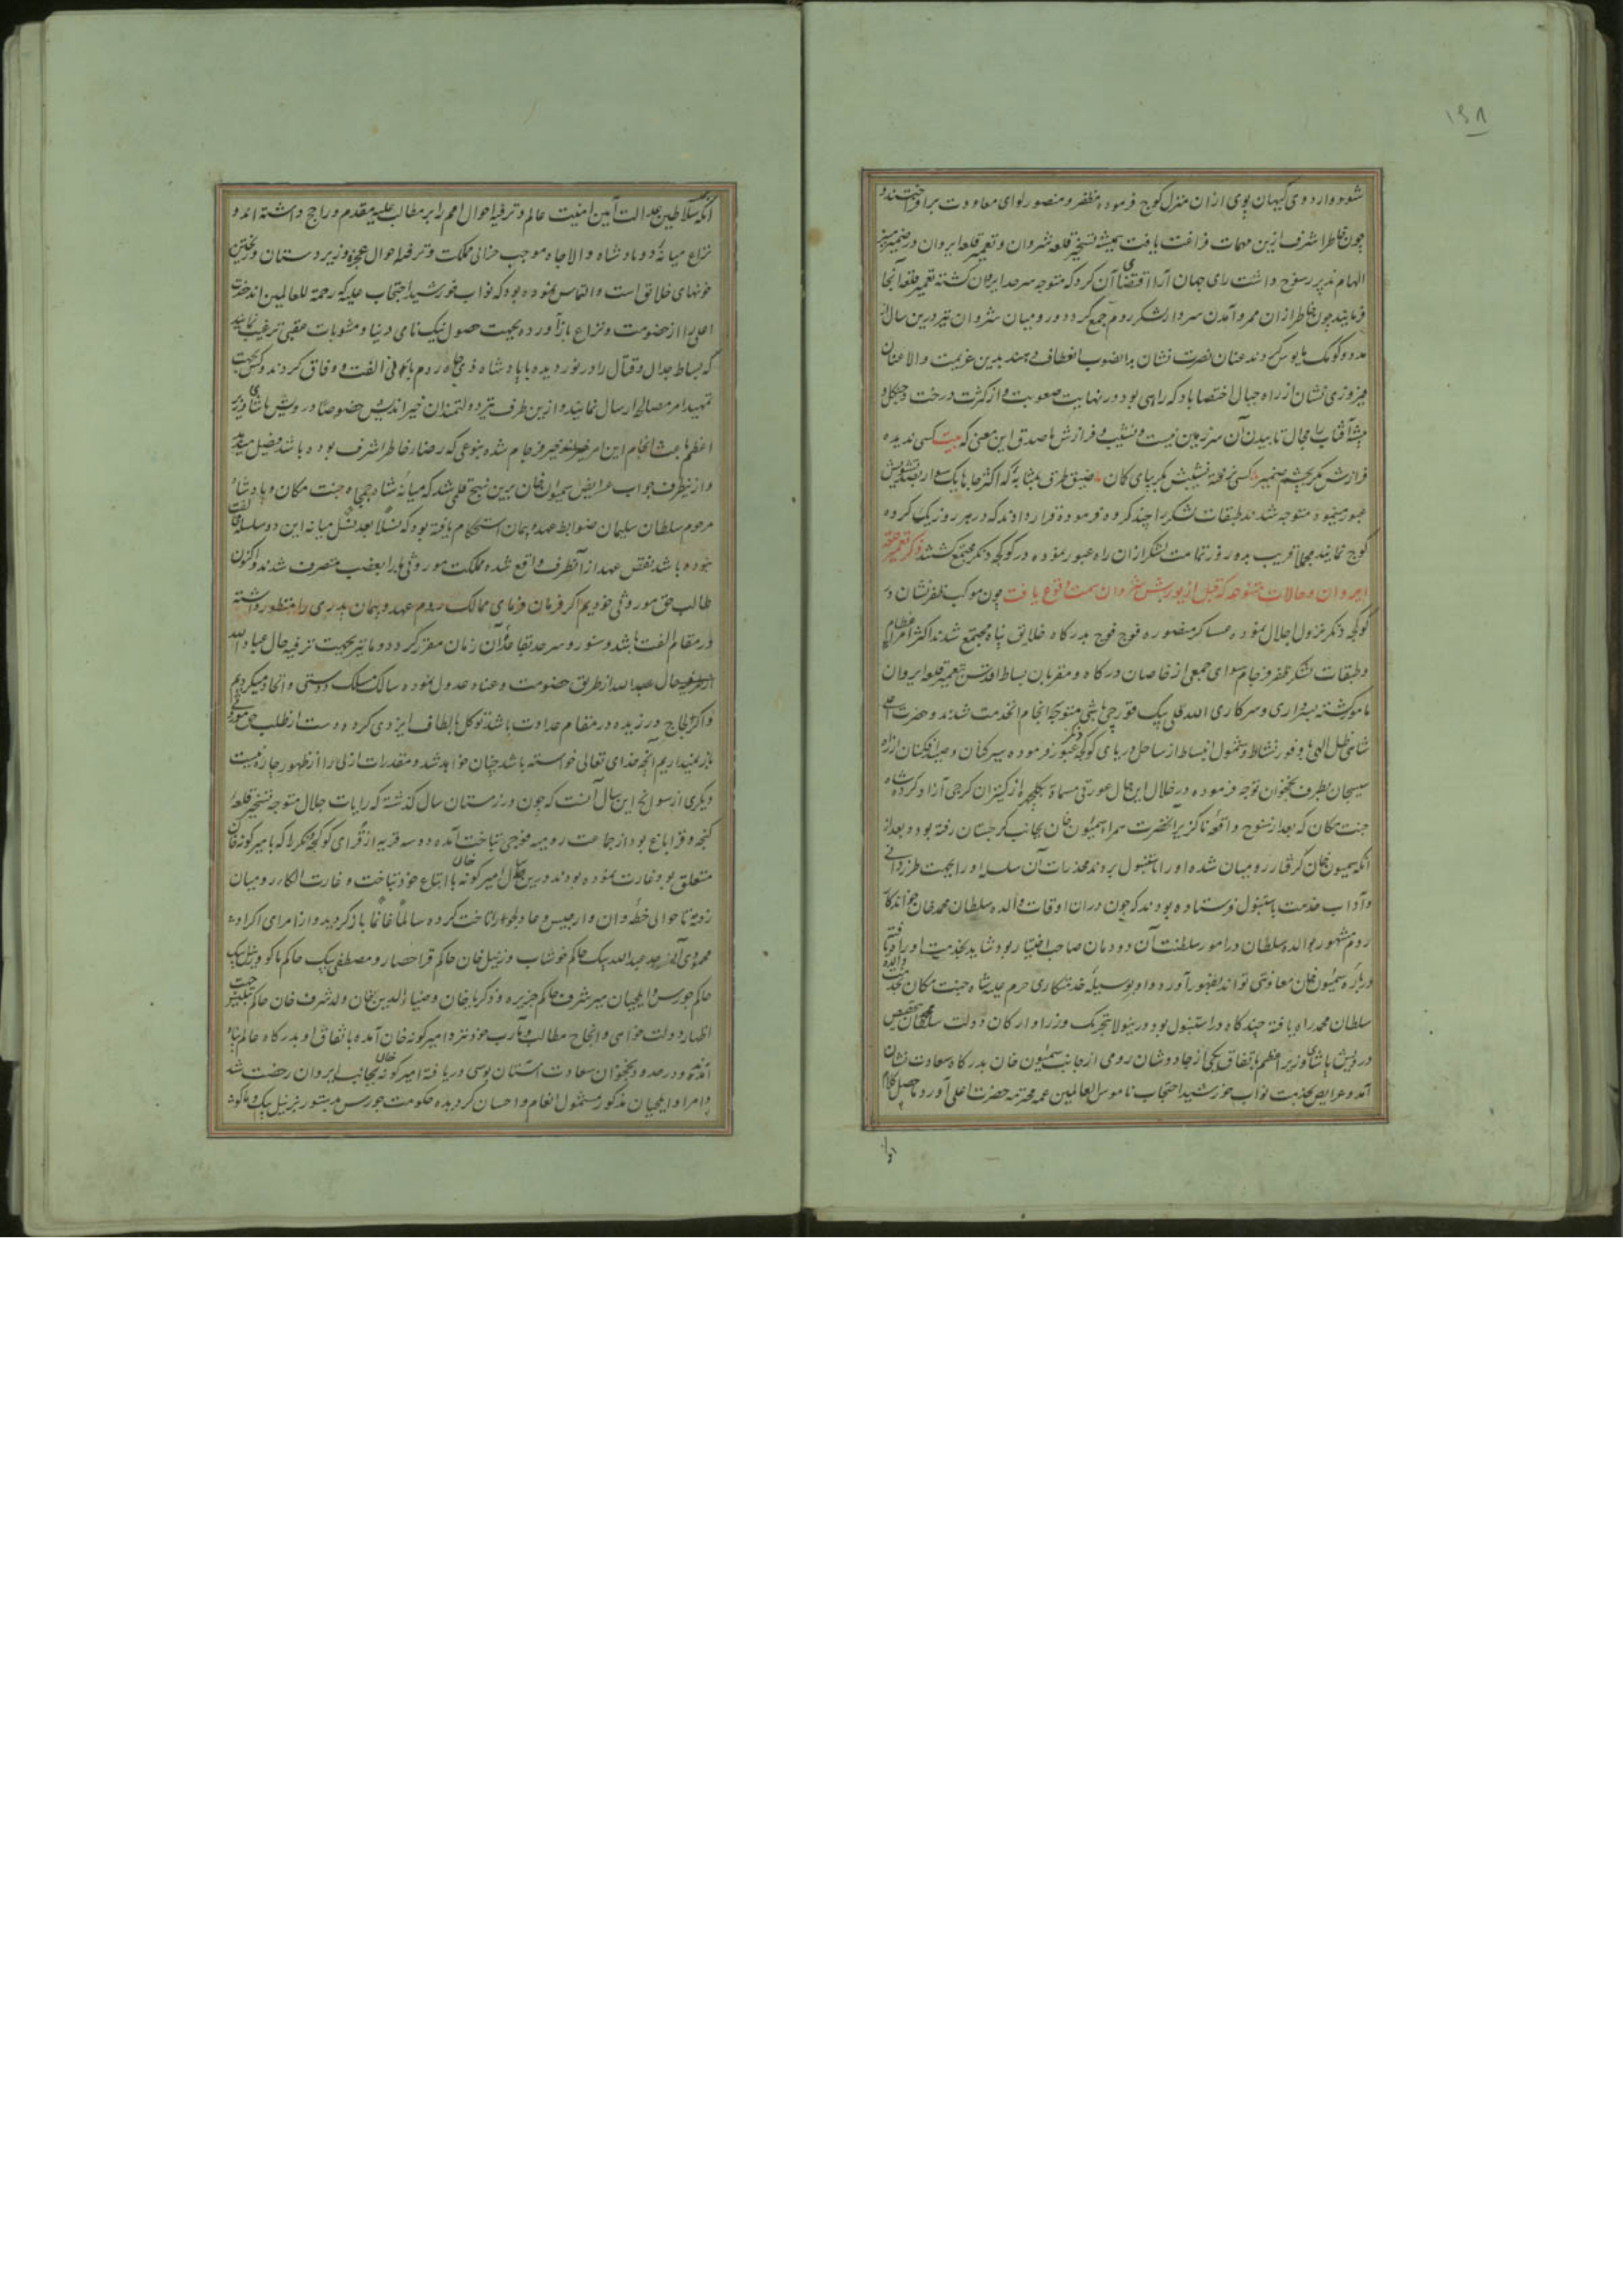 ۱۵۸
شود و اردوی کیهان پوی از ان منزل کوچ فرموده مظفر و منصور لوای معاودت برافراختند و
چون خاطر اشرف ازین مهمات فراغت یافت همیشه تسخیر قلعه شروان و تعمیر قلعه ایروان در ضمیر منیر
الهام پذیر رسوخ داشت رای جهان آرا اقتضای آن کرد که متوجه سرحد ایروان کشته تعمیر قلعه آنجا
فرمایند چون خاطر از ان ممر و آمدن سردار و لشکر روم جمع کردد و رومیان شروان نیز درین سال از
مدد و کومک مایوس کردند عنان نصرت نشان بدانصوب انعطاف دهند بدین عزیمت والا عنان
فیروزی نشان از راه جبال اختصاباد که راهی بود در نهایت صعوبت و از کثرت درخت و جنکل و
بیشه آفتاب را مجال تابیدن آن سرزمین نیست و نشیب و فرازش ها صدق این معنی که بیت کسی ندیده
فرازش مکر بچشم ضمیر کسی نرفته نشیبش مکر بپای کمان ضیق طرق بمثابه که اکثر جاها یک سوار بصد تشویش
عبور مینمود متوجه شدند طبقات لشکر را چند کروه فرموده قرار دادند که در هر روز یک کروه
کوچ نمایند مجملا قریب بده روز تمامت لشکر از ان راه عبور نموده در کوکجه دنکز مجتمع کشتند ذکر تعمیر قلعه
ایروان و حالات متنوعه که قبل از یورش شروان سمت وقوع یافت چون موکب ظفر نشان در
کوکجه دنکز نزول اجلال نموده عساکر منصوره فوج فوج بدرکاه خلایق پناه مجتمع شدند اکثر امراء عظام
و طبقات لشکر ظفر فرجام سوای جمعی از خاصان درکاه و مقربان بساط اقدس بتعمیر قلعه ایروان
مامور کشته بسرداری و سرکاری الله قلی بیک قورچی باشی متوجه انجام انخدمت شدند و حضرت اعلی
شاهی ظل الهی با وفور نشاط و شمول انبساط از ساحل دریای کوکجه دنکز عبور فرموده سیرکنان و صید افکنان از راه
سیسجان بطرف نخجوان توجه فرموده در خلال این حال عورتی مسماة بکلچهره از کنیزان کرجی آزاد کرده شاه
جنت مکان که بعد از سنوح واقعه ناکزیر انحضرت همراه سمیون خان بجانب کرجستان رفته بود و بعد از
انکه سمیون خان کرفتار رومیان شده او را باستنبول بردند مخدرات آن سلسله او را بجهت طرز دانی
و آداب خدمت باستنبول فرستاده بودند که چون دران اوقات والده سلطان محمد خان خواندکار
روم مشهور بوالده سلطان در امور سلطنت آن دودمان صاحب اختیار بود شاید بخدمت او راه یافته
درباره سمیون خان معاونتی تواند بظهور آورد و او بوسیله خدمتکاری حرم علیه شاه جنت مکان بخدمت والده
سلطان محمد راه یافته چند کاه در استنبول بود درینولا بتحریک وزرا و ارکان دولت سلطان محمد بتخصیص
درویش پاشای وزیر اعظم باتفاق یکی از چاووشان رومی از جانب سمیون خان بدرکاه سعادت نشان
آمد و عرایض بخدمت نواب خورشید احتجاب ناموس العالمین عمه محترمه حضرت اعلی آورد ماحصل کلام
انکه
انکه سلاطین عدالت آیین امنیت عالم و ترفیه احوال امم را بر مطالب علیه مقدم و راجح داشته اند و
نزاع میانه دو پادشاه والا جاه موجب خرابی مملکت و ترفیه احوال عجزه و زیردستان و ریختن
خونهای خلائق است و التماس نموده بود که نواب خورشید احتجاب علیه که رحمة للعالمین اند حضرت
اعلی را از خصومت و نزاع بازآورده بجهت حصول نیک نامی دنیا و مثوبات عقبی ترغیب نمایند
که بساط جدال و قتال را در نوردیده با پادشاه ذی جاه روم بنای الفت و وفاق کردند و کس بجهت
تمهید امر مصالحه ارسال نمایند و ازین طرف نیز دولتمندان خیراندیش خصوصا درویش پاشای وزیر
اعظم باعث انجام این امر خیر فرجام شده بنوعی که رضاء خاطر اشرف بوده باشد فیصل میدهند
و از ینطرف جواب عرایض سمیون خان برین نهج قلمی شد که میانه شاه جمجاه جنت مکان و پادشاه
مرحوم سلطان سلیمان ضوابط عهد و پیمان استحکام یافته بود که نسلا بعد نسل میانه این دو سلسله مخالفت
نبوده باشد نقض عهد از آنطرف واقع شده مملکت موروثی ما را بغصب متصرف شدند و اکنون
طالب حق موروثی خودیم اکر فرمان فرمای ممالک روم عهد و پیمان پدری را منظور داشته
در مقام الفت باشد و سنور و سرحد بقاعده آن زمان مقرر کردد ما نیز بجهت ترفیه حال عباد الله
از طریق خصومت و عناد عدول نموده سالک مسلک دوستی و اتحاد میکردیم
و اکر لجاج ورزیده در مقام عداوت باشد توکل بالطاف ایزدی کرده دست از طلب حق موروثی
باز نمیداریم آنچه خدای تعالی خواسته باشد چنان خواهد شد و مقدرات ازلی را از ظهور چاره نیست
دیکری از سوانح این سال آنست که چون در زمستان سال کذشته که رایات جلال متوجه تسخیر قلعه
کنجه و قراباغ بود از جماعت رومیه فوجی بتاخت آمده دو سه قریه از قرای کوکجه دنکز را که بامیر کونه خان
متعلق بود غارت نموده بودند درین سال امیر کونه خان با اتباع خود بتاخت و غارت الکاء رومیان
رفته تا حوالی خطه وان و ارجیس و عادلجواز تاخت کرده سالماً غانماً باز کردید و از امرای اکراد
محمودی عبدالله بیک حاکم خوشاب و زینل خان حاکم قراحصار و مصطفی بیک حاکم ماکو و زینل بیک
حاکم چورس و ایلچیان میر شرف حاکم جزیره و ذکریا خان و ضیاء الدین خان ولد شرف خان حاکم تبلیس جهت
اظهار دولت خواهی و انجاح مطالب و مآرب خود نزد امیر کونه خان آمده باتفاق او بدرکاه عالم پناه
آمده و در حدود نخجوان سعادت آستان بوسی دریافته امیر کونه خان بجانب ایروان رخصت شد
و امرا و ایلچیان مذکور مشمول انعام و احسان کردیده حکومت چورس بدستور بزینل بیک و ماکو